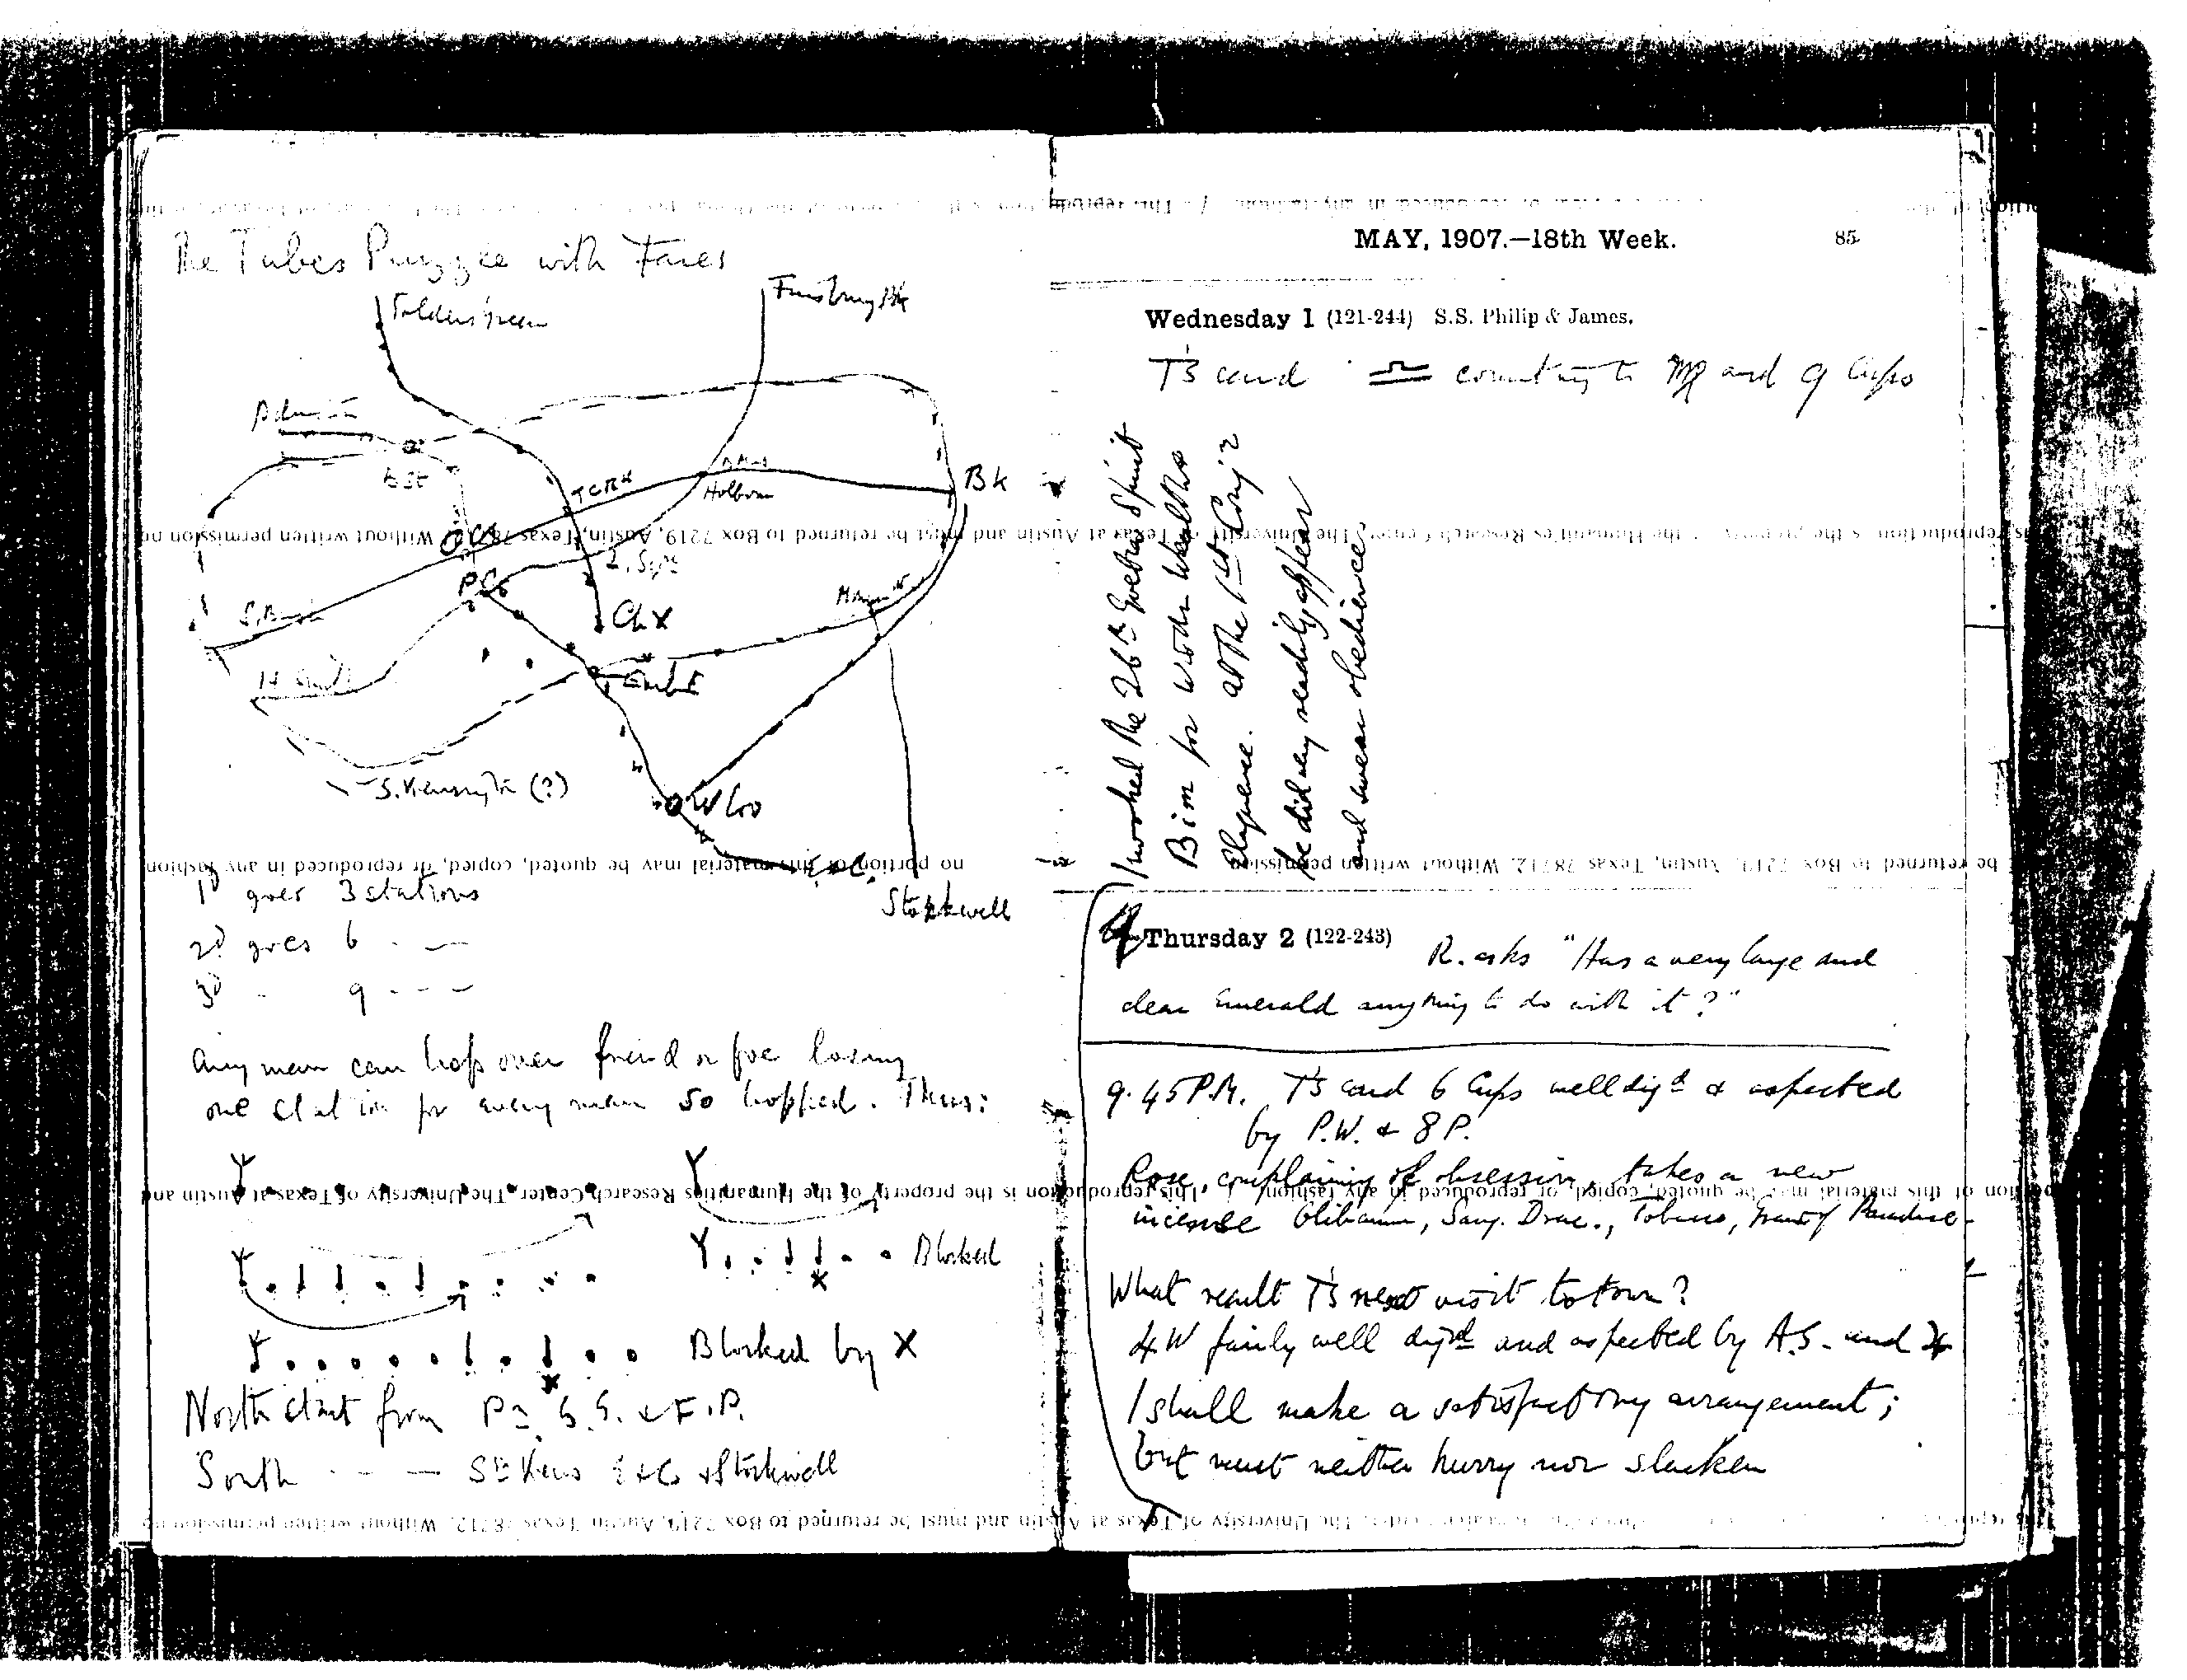 The Tubes Puzzle with Fares
Golders Green
Finsbury Pk
B St
TCRd
Holborn
Bk
OCs
PCs
L. Sqre
S. Bush
Ch X
Emb't
S. Kensington (?)
Wloo
E & C.
Stockwell
1d goes 3 stations
2d goes 6 - —
3d - 9 - - -
Any man can hop over friend or foe losing
one station for every man so hopped. Thus:
Blocked
Blocked by X
North start from Pn, G.G. & F.P.
South - - — Sth Kens E&C & Stockwell
MAY, 1907.—18th Week. 85
Wednesday 1 (121-244) S.S. Philip & James.
T's card ♎ counting to ♍ and 9 Cups
I invoked the 26th Goetia Spirit
Bim for wisdom wealth &
eloquence. At the 1st Conj'n
he did very readily appear
and swear obedience
Thursday 2 (122-243) R. asks "Has a very large and
clear Emerald anything to do with it?"
9.45 P.M. T's card 6 Cups well digd & aspected
by P.W. & 8 P.
Rose, complaining of obsession, takes a new
incense Olibanum, Sang. Drac., Tobacco, Grains of Paradise -
What result T's next visit to town?
4 W fairly well digd and aspected by A.S. and ♃
I shall make a satisfactory arrangement;
but must neither hurry nor slacken
no portion of this material may be quoted, copied, or reproduced in any fashion
This reproduction is the property of the Humanities Research Center, The University of Texas at Austin and must be returned to Box 7219, Austin, Texas 78712. Without written permission no